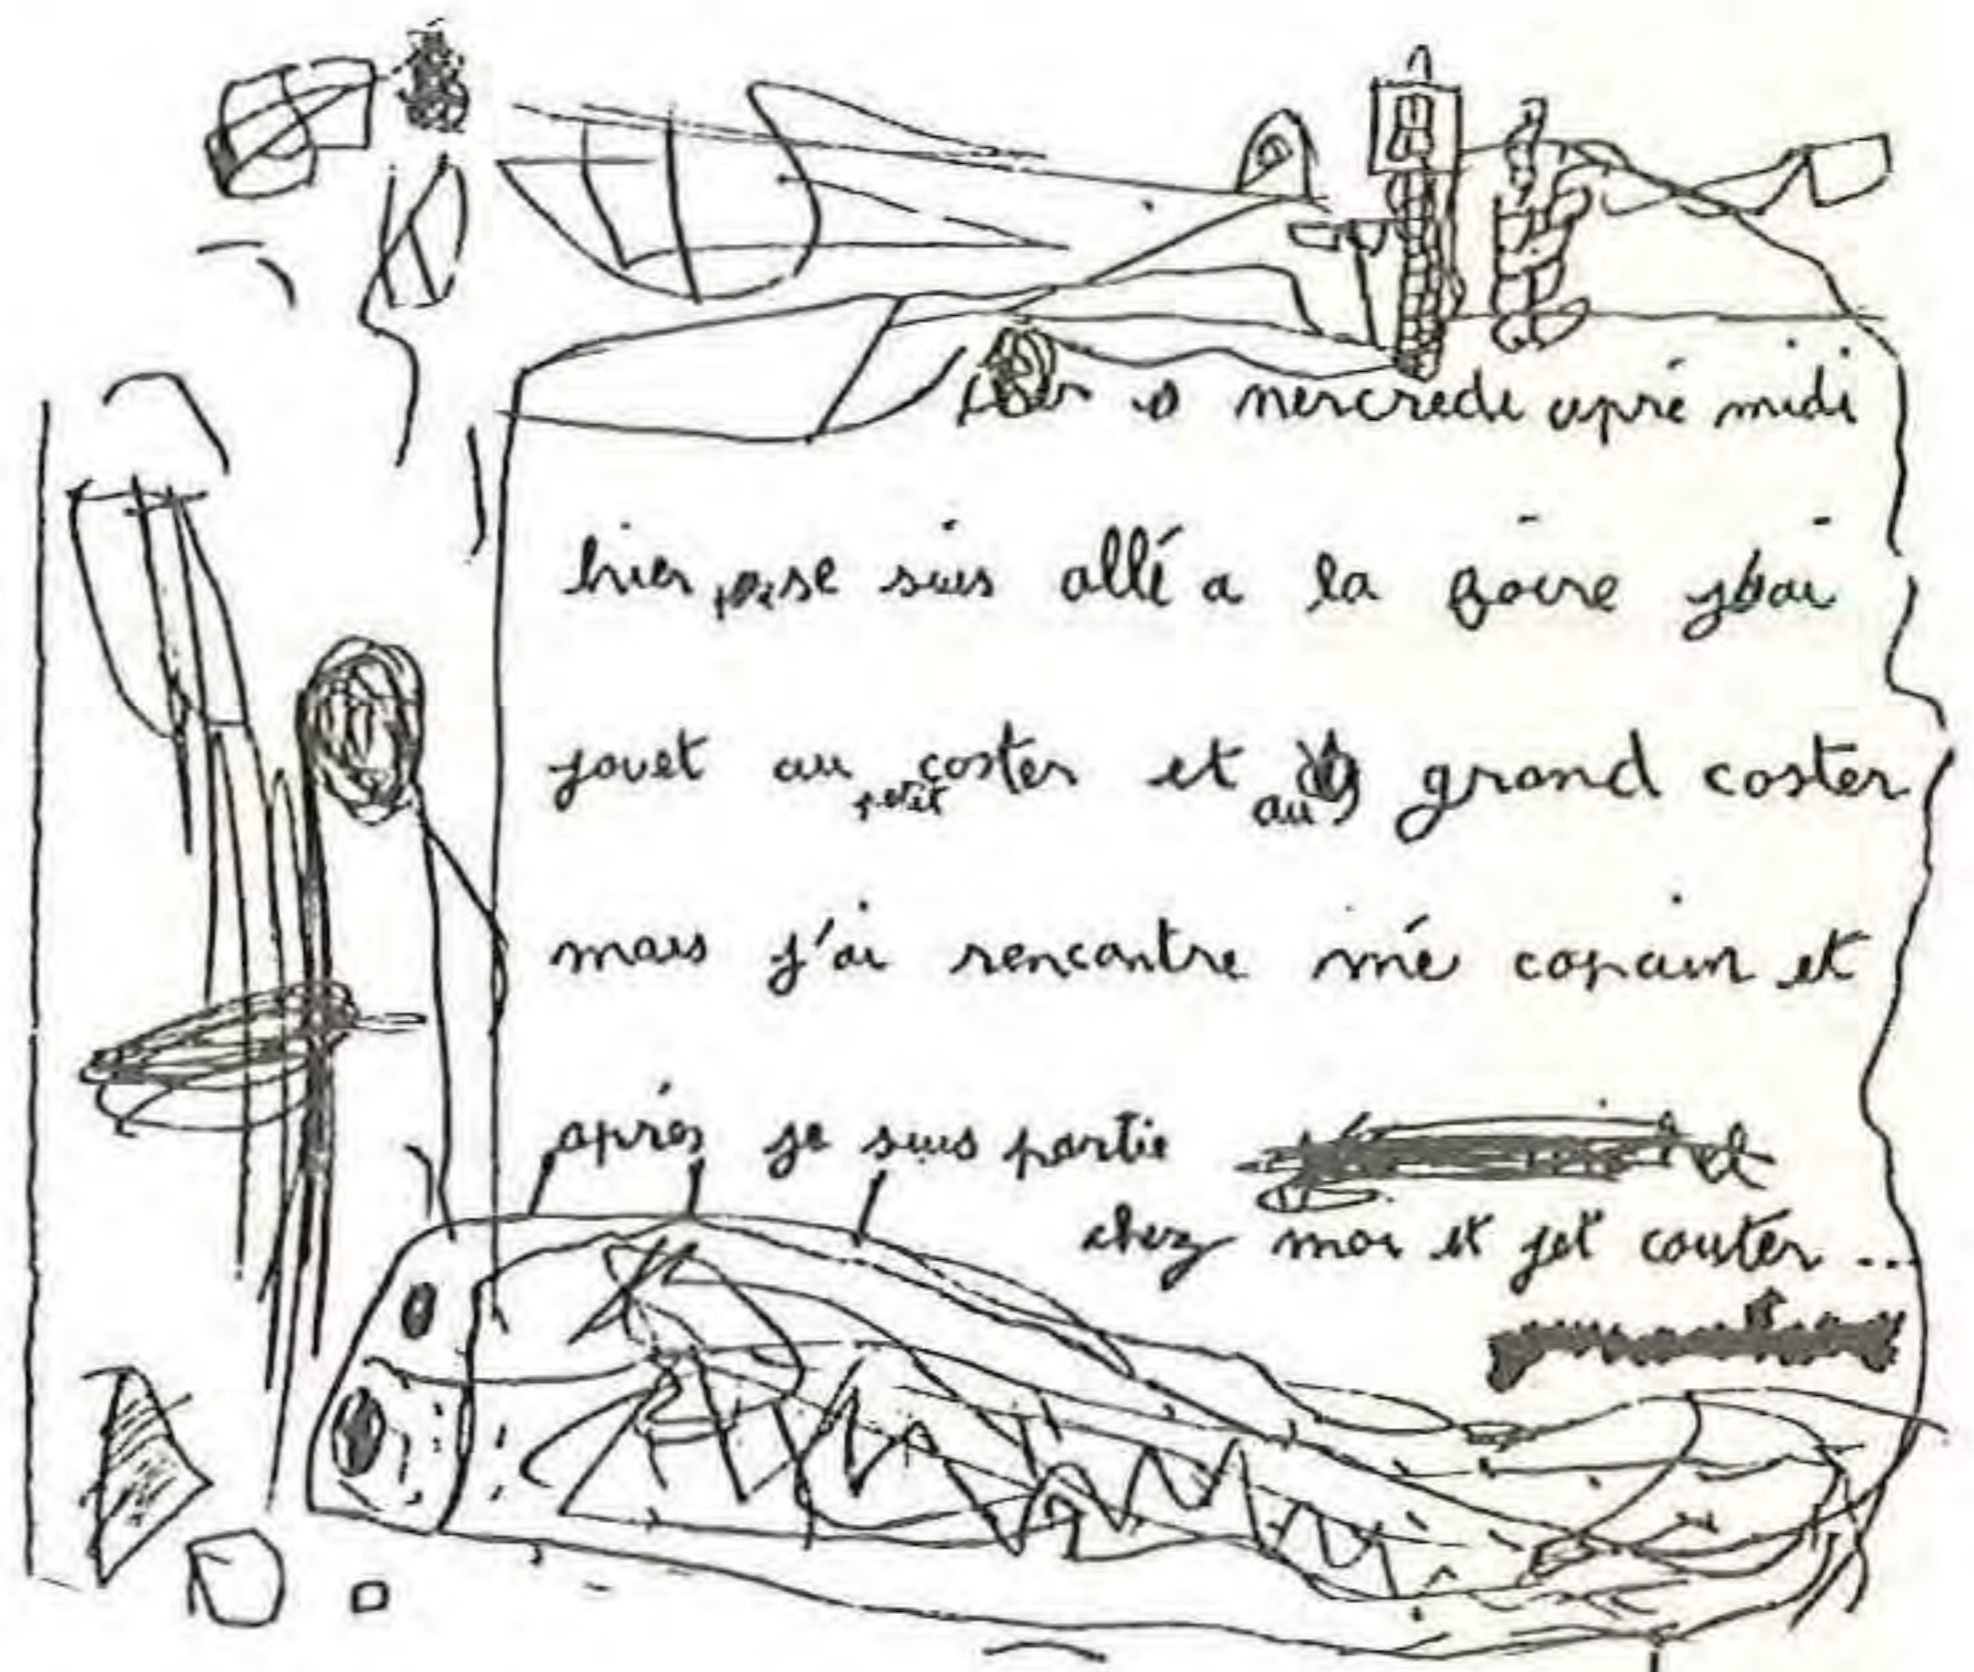 mercredi apré midi
hier se suis allé a la foire j'ai
jouet au petit coster et au grand coster
mais j'ai rencontre mé copain et
aprés je suis partie
chez moi et jet couter ...